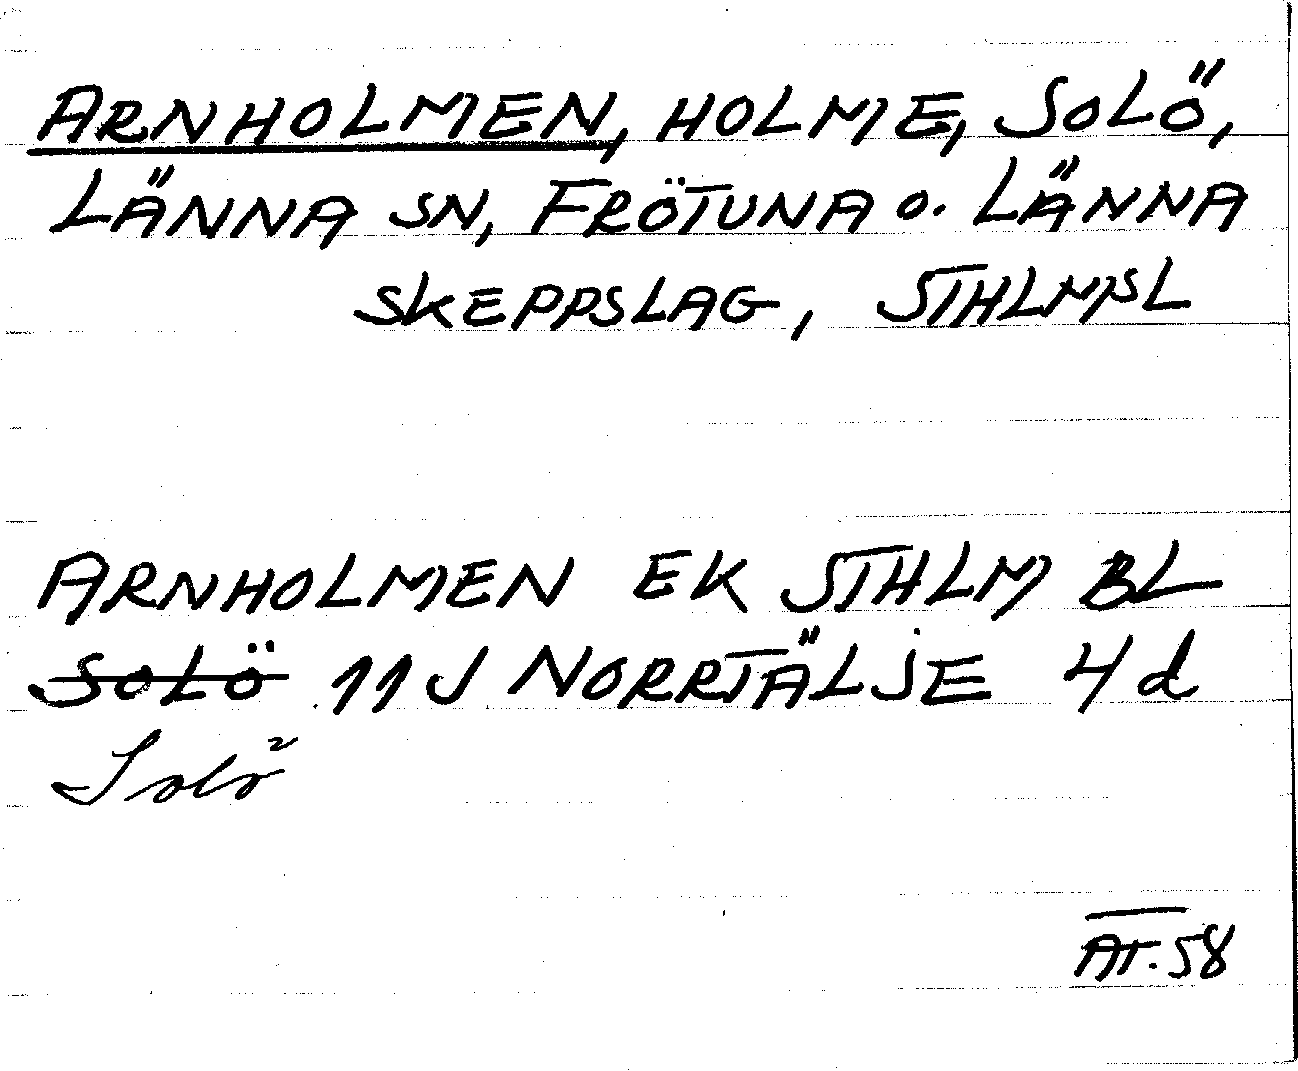 ARNHOLMEN, HOLME, SOLÖ,
LÄNNA SN, FRÖTUNA o. LÄNNA
SKEPPSLAG, STHLMSL
ARNHOLMEN EK STHLM BL
SOLÖ 11J NORRTÄLJE 4d
Solö
AT. 58